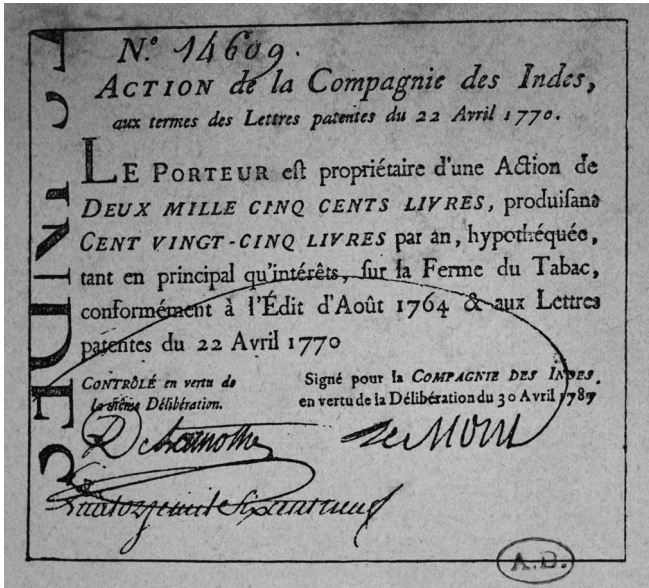 N.º 14609.
ACTION de la Compagnie des Indes,
aux termes des Lettres patentes du 22 Avril 1770.
LE PORTEUR eſt propriétaire d'une Action de
DEUX MILLE CINQ CENTS LIVRES, produiſant
CENT VINGT-CINQ LIVRES par an, hypothéquée,
tant en principal qu'intérêts, ſur la Ferme du Tabac,
conformément à l'Édit d'Août 1764 & aux Lettres
patentes du 22 Avril 1770
CONTRÔLÉ en vertu de
la même Délibération.
Signé pour la COMPAGNIE DES INDES,
en vertu de la Délibération du 30 Avril 1787
A.D.